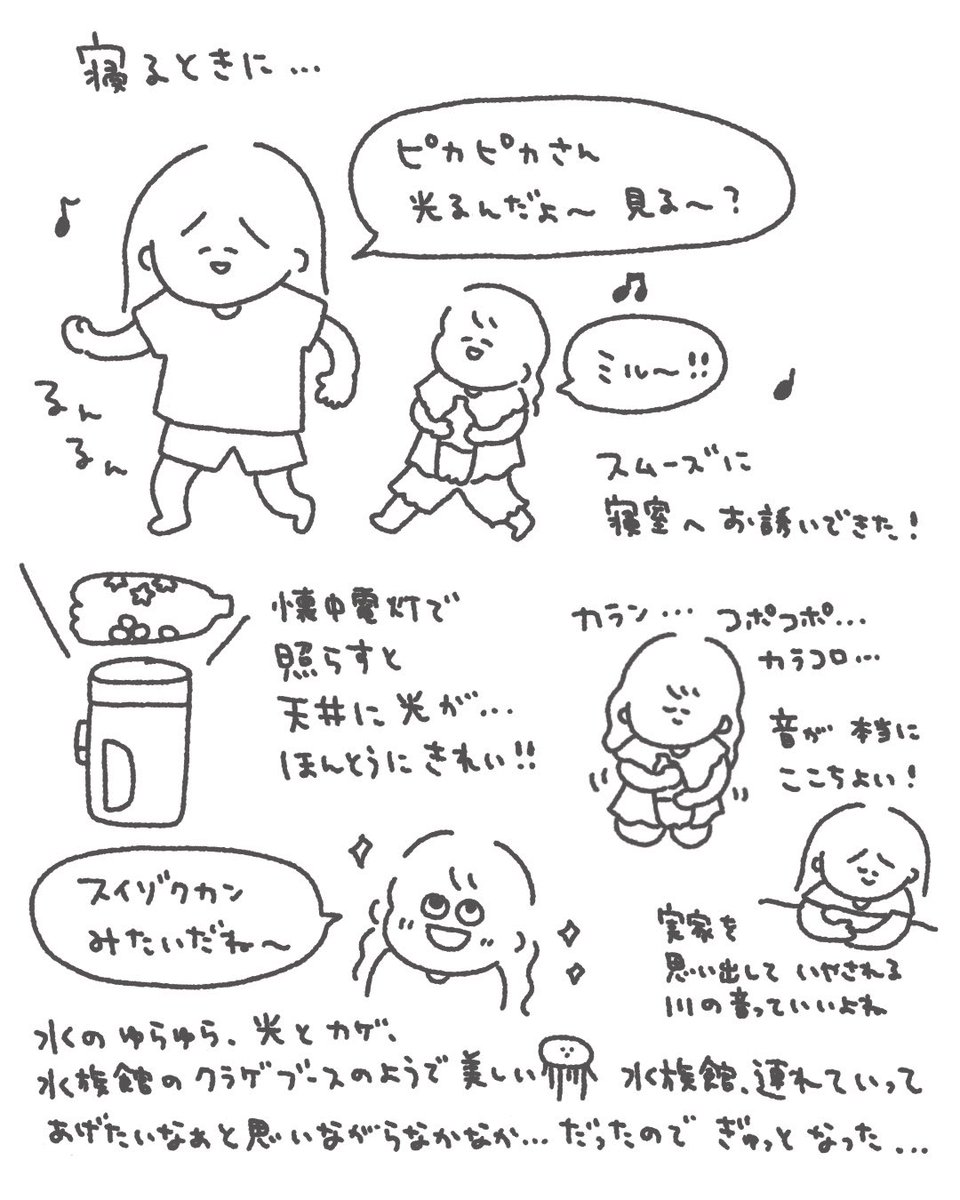 寝るときに…
ピカピカさん
光るんだよ〜 見る〜?
ミル〜!!
るん
るん
スムーズに
寝室へお誘いできた!
懐中電灯で
照らすと
天井に光が…
ほんとうにきれい!!
カラン… コポコポ…
カラコロ…
音が本当に
ここちよい!
スイゾクカン
みたいだね〜
実家を
思い出していやされる
川の音っていいよね
水のゆらゆら、光とカゲ、
水族館のクラゲブースのようで美しい 水族館、連れていって
あげたいなぁと思いながらなかなか…だったのでぎゅっとなった…